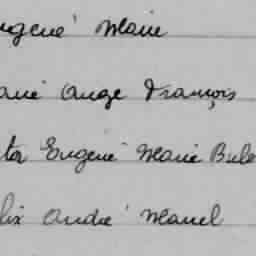 ugène Marie
arie Ange François
tor Eugène Marie Bule
lix André Marcel